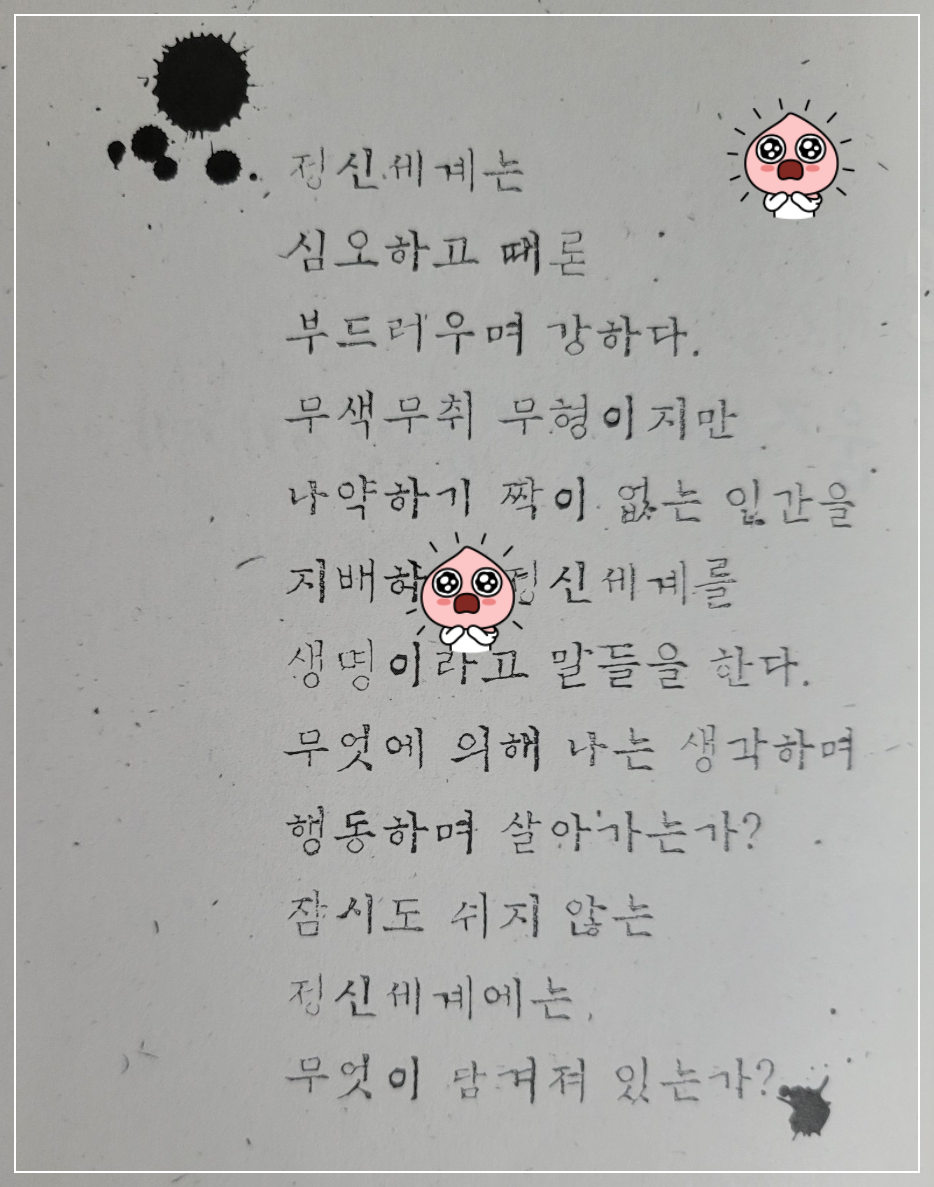 정신세계는
심오하고 때론
부드러우며 강하다.
무색무취 무형이지만
나약하기 짝이 없는 인간을
정신세계를
생명이라고 말들을 한다.
무엇에 의해 나는 생각하며
행동하며 살아가는가?
잠시도 쉬지 않는
정신세계에는,
무엇이 담겨져 있는가?